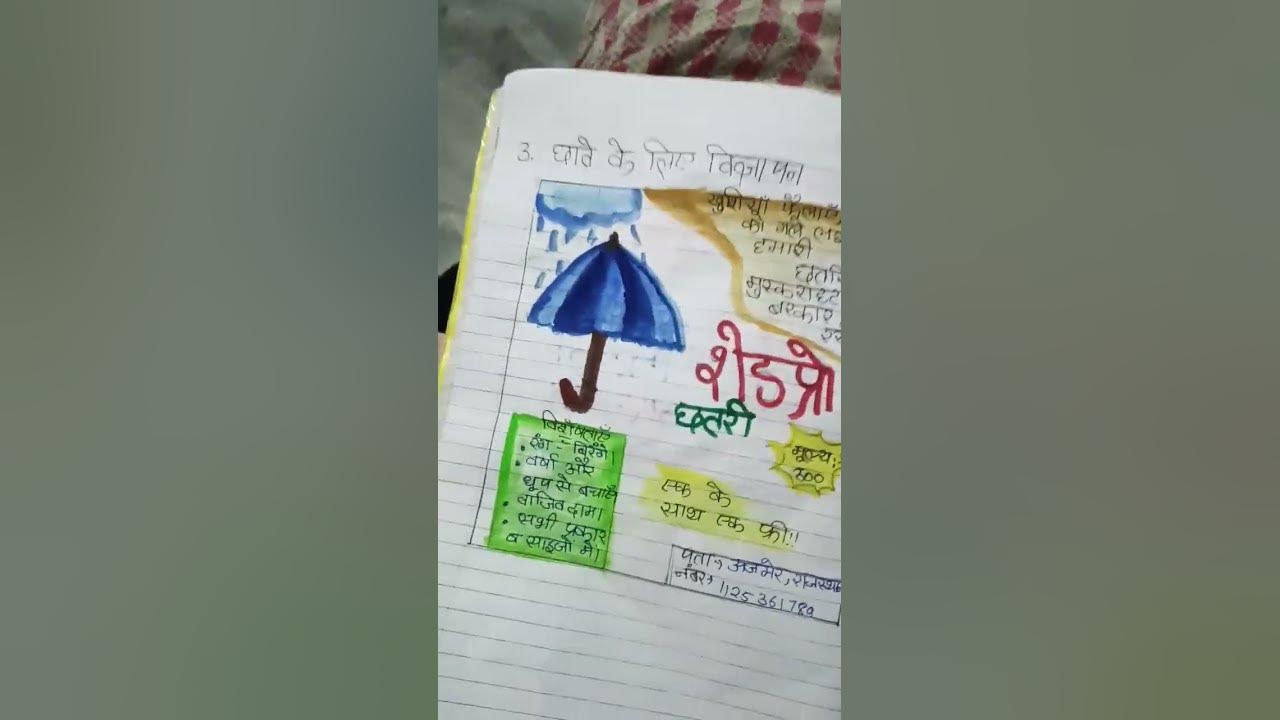 3. छाते के लिए विज्ञापन
खुशियाँ फैलाएँ,
को गले
हमारी
मुस्कराहट
बरकार
शेड प्रो
छतरी
विशेषताएँ
• रंग - बिरंगे।
• वर्षा और
धूप से बचाएँ
• वाजिब दाम।
• सभी प्रकार
व साइजों में।
मूल्य:
300
एक के
साथ एक फ्री!!
पता:- अजमेर, राजस्थान
नंबर:- 1125361789